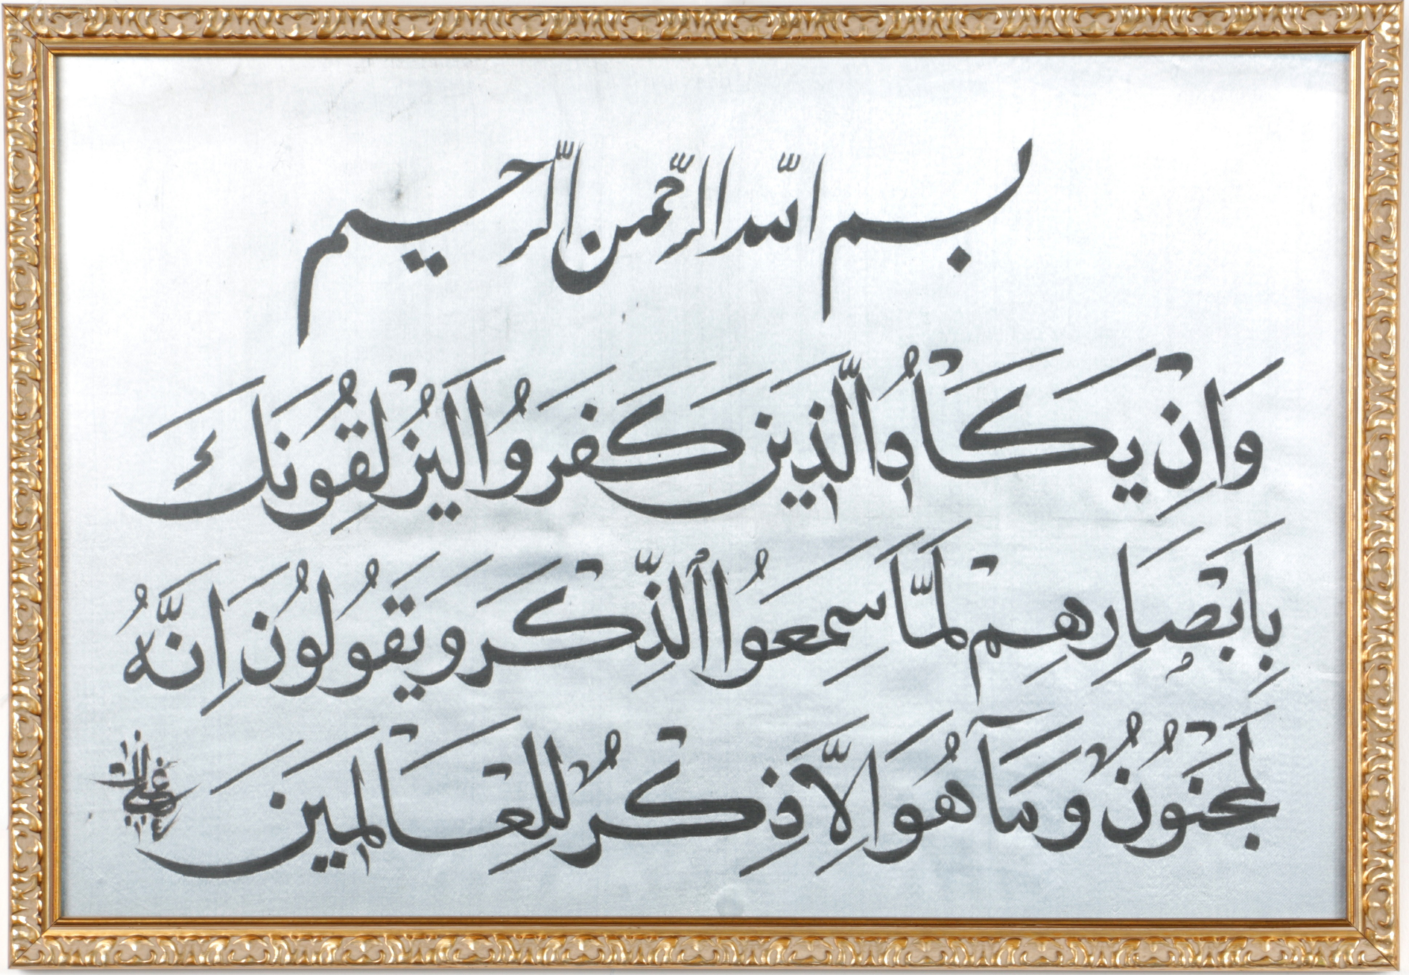 بسم الله الرحمن الرحيم
وَاِنْ يَكَادُ الَّذِينَ كَفَرُوا لَيُزْلِقُونَكَ
بِاَبْصَارِهِمْ لَمَّا سَمِعُوا الذِّكْرَ وَيَقُولُونَ اِنَّهُ
لَمَجْنُونٌ وَمَا هُوَ اِلَّا ذِكْرٌ لِلْعَالَمِينَ